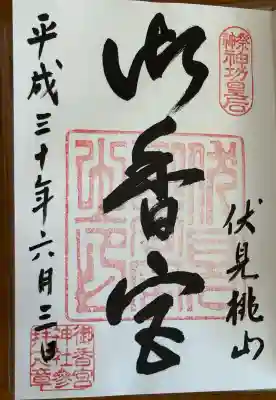 祭神神功皇后
伏見桃山
御香宮
平成三十年六月三日
御香宮
神社参
拝之章